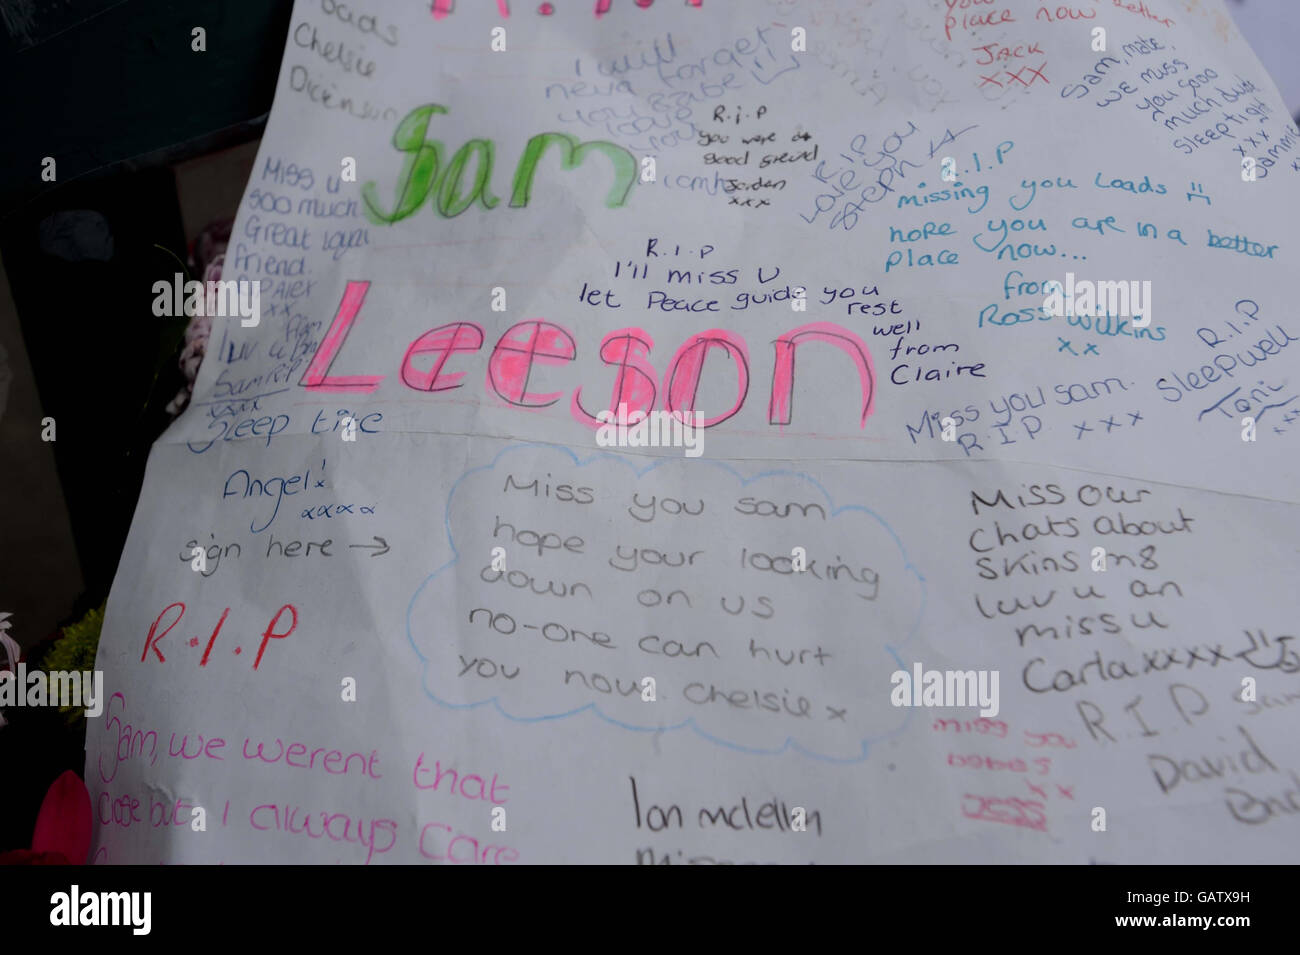 R.I.P
Loads
Chelsie
Dickinson
I will
never forget
you babe!
love
you
R.i.P
you were a
good friend
Jordan
xxx
R.I.P
Love you
Steph
place now better
JACK
xxx
Sam, mate,
we miss
you sooo
much dude
sleep tight
xxx
Sammie
Sam
Leeson
Miss u
soo much
Great
friend.
Alex
xx
luv u
Sam R.I.P
xxxx
Sleep tite
Angel!
xxxx
sign here →
R.I.P
I'll miss U
let Peace guide you
rest
well
from
Claire
R.I.P
missing you Loads
hope you are in a better
place now...
from
Ross Wilkins
xx
R.I.P
Sleepwell
Toni
xxx
Miss you Sam.
R.I.P xxx
R.I.P
Miss you sam
hope your looking
down on us
no-one can hurt
you now. Chelsie x
Miss our
chats about
skins
luv u an
miss u
Carla xxxx
R.I.P Sam
David
miss you
babes
xx
JESS
Sam, we werent that
close but I always care
Ian mclellan
alamy
Image ID: GATX9H
www.alamy.com